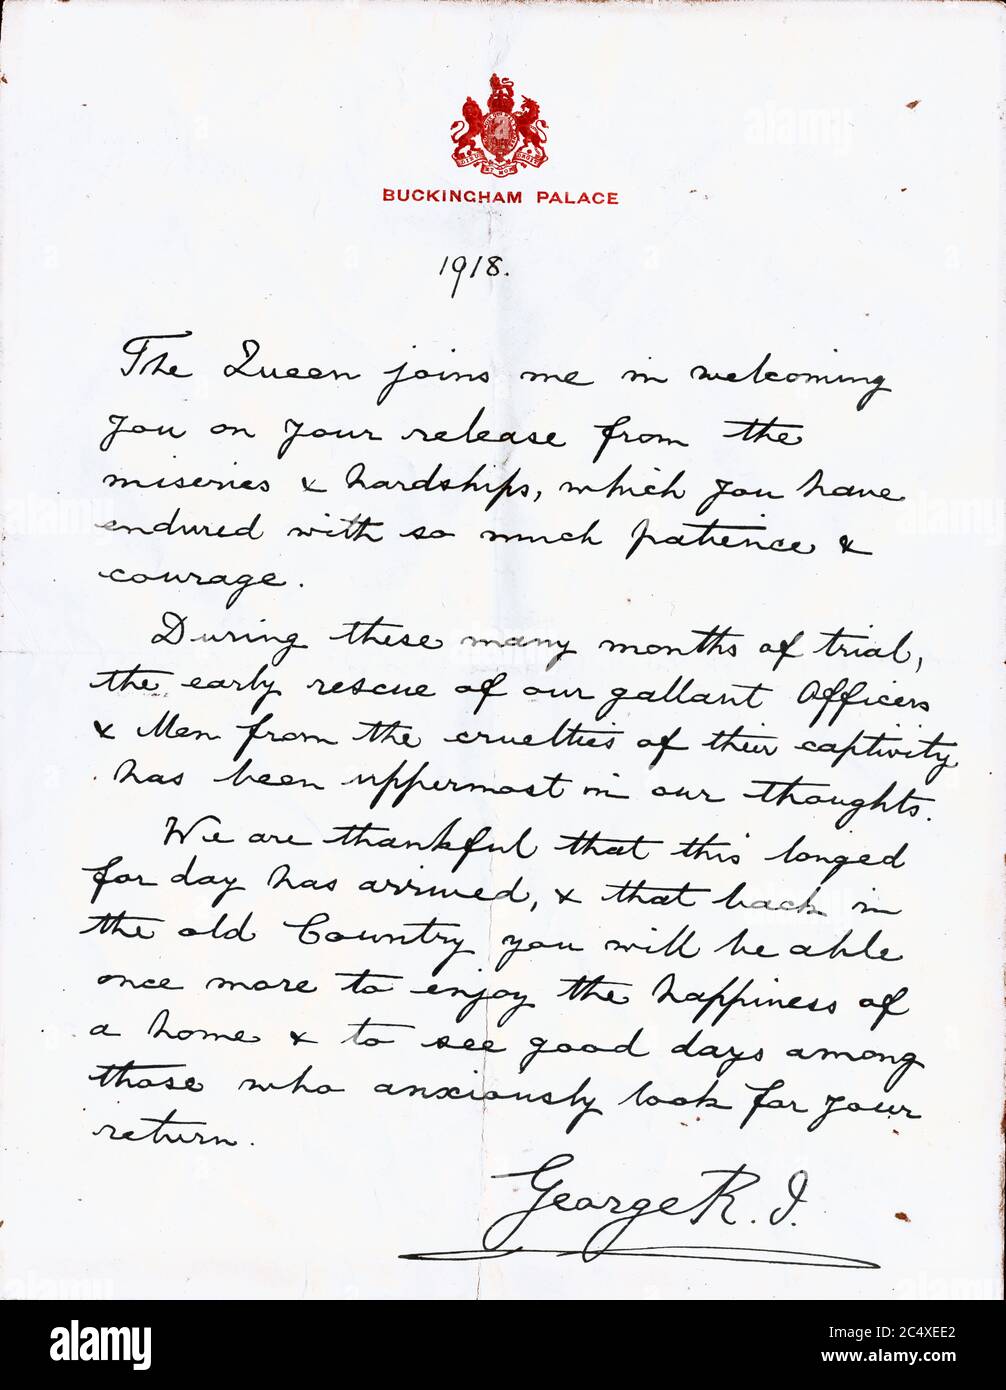 DIEU ET MON DROIT
BUCKINGHAM PALACE
1918.
The Queen joins me in welcoming
you on your release from the
miseries & hardships, which you have
endured with so much patience &
courage.
During these many months of trial,
the early rescue of our gallant Officers
& Men from the cruelties of their captivity
has been uppermost in our thoughts.
We are thankful that this longed
for day has arrived, & that back in
the old Country you will be able
once more to enjoy the happiness of
a home & to see good days among
those who anxiously look for your
return.
George R.I.
alamy
Image ID: 2C4XEE2
www.alamy.com